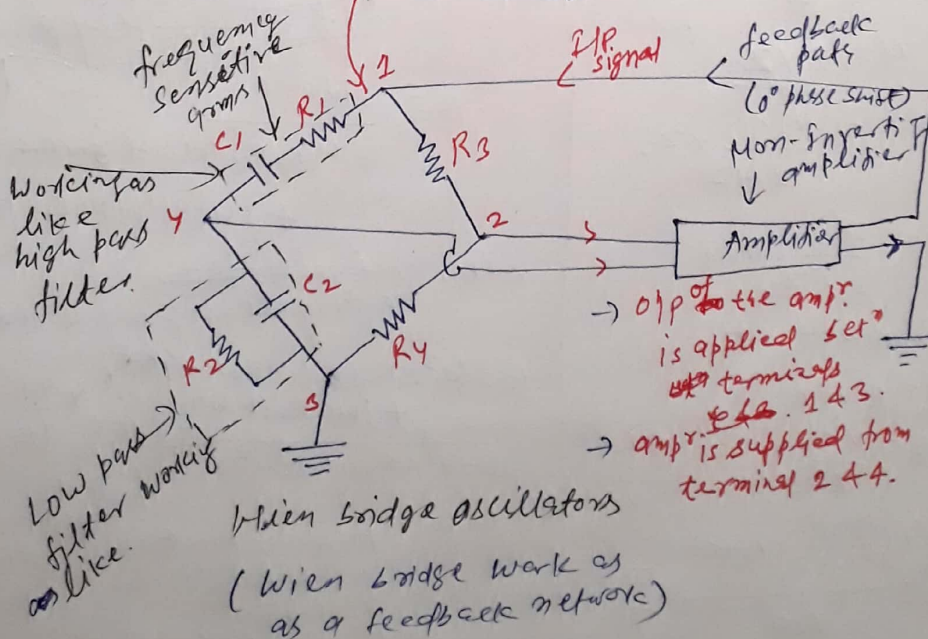 frequency
sensitive
arms
C1
R1
1
I/P
signal
feedback
path
(0° phase shift)
Non-Inverti
amplifier
R3
Working as
like
high pass
filter.
4
2
Amplifier
C2
R2
R4
3
→ O/P of the ampr.
is applied betn
terminals
1 & 3.
→ ampr. is supplied from
terminal 2 & 4.
Low pass
filter working
as like.
Wien bridge oscillators
(Wien bridge work as
as a feedback network)